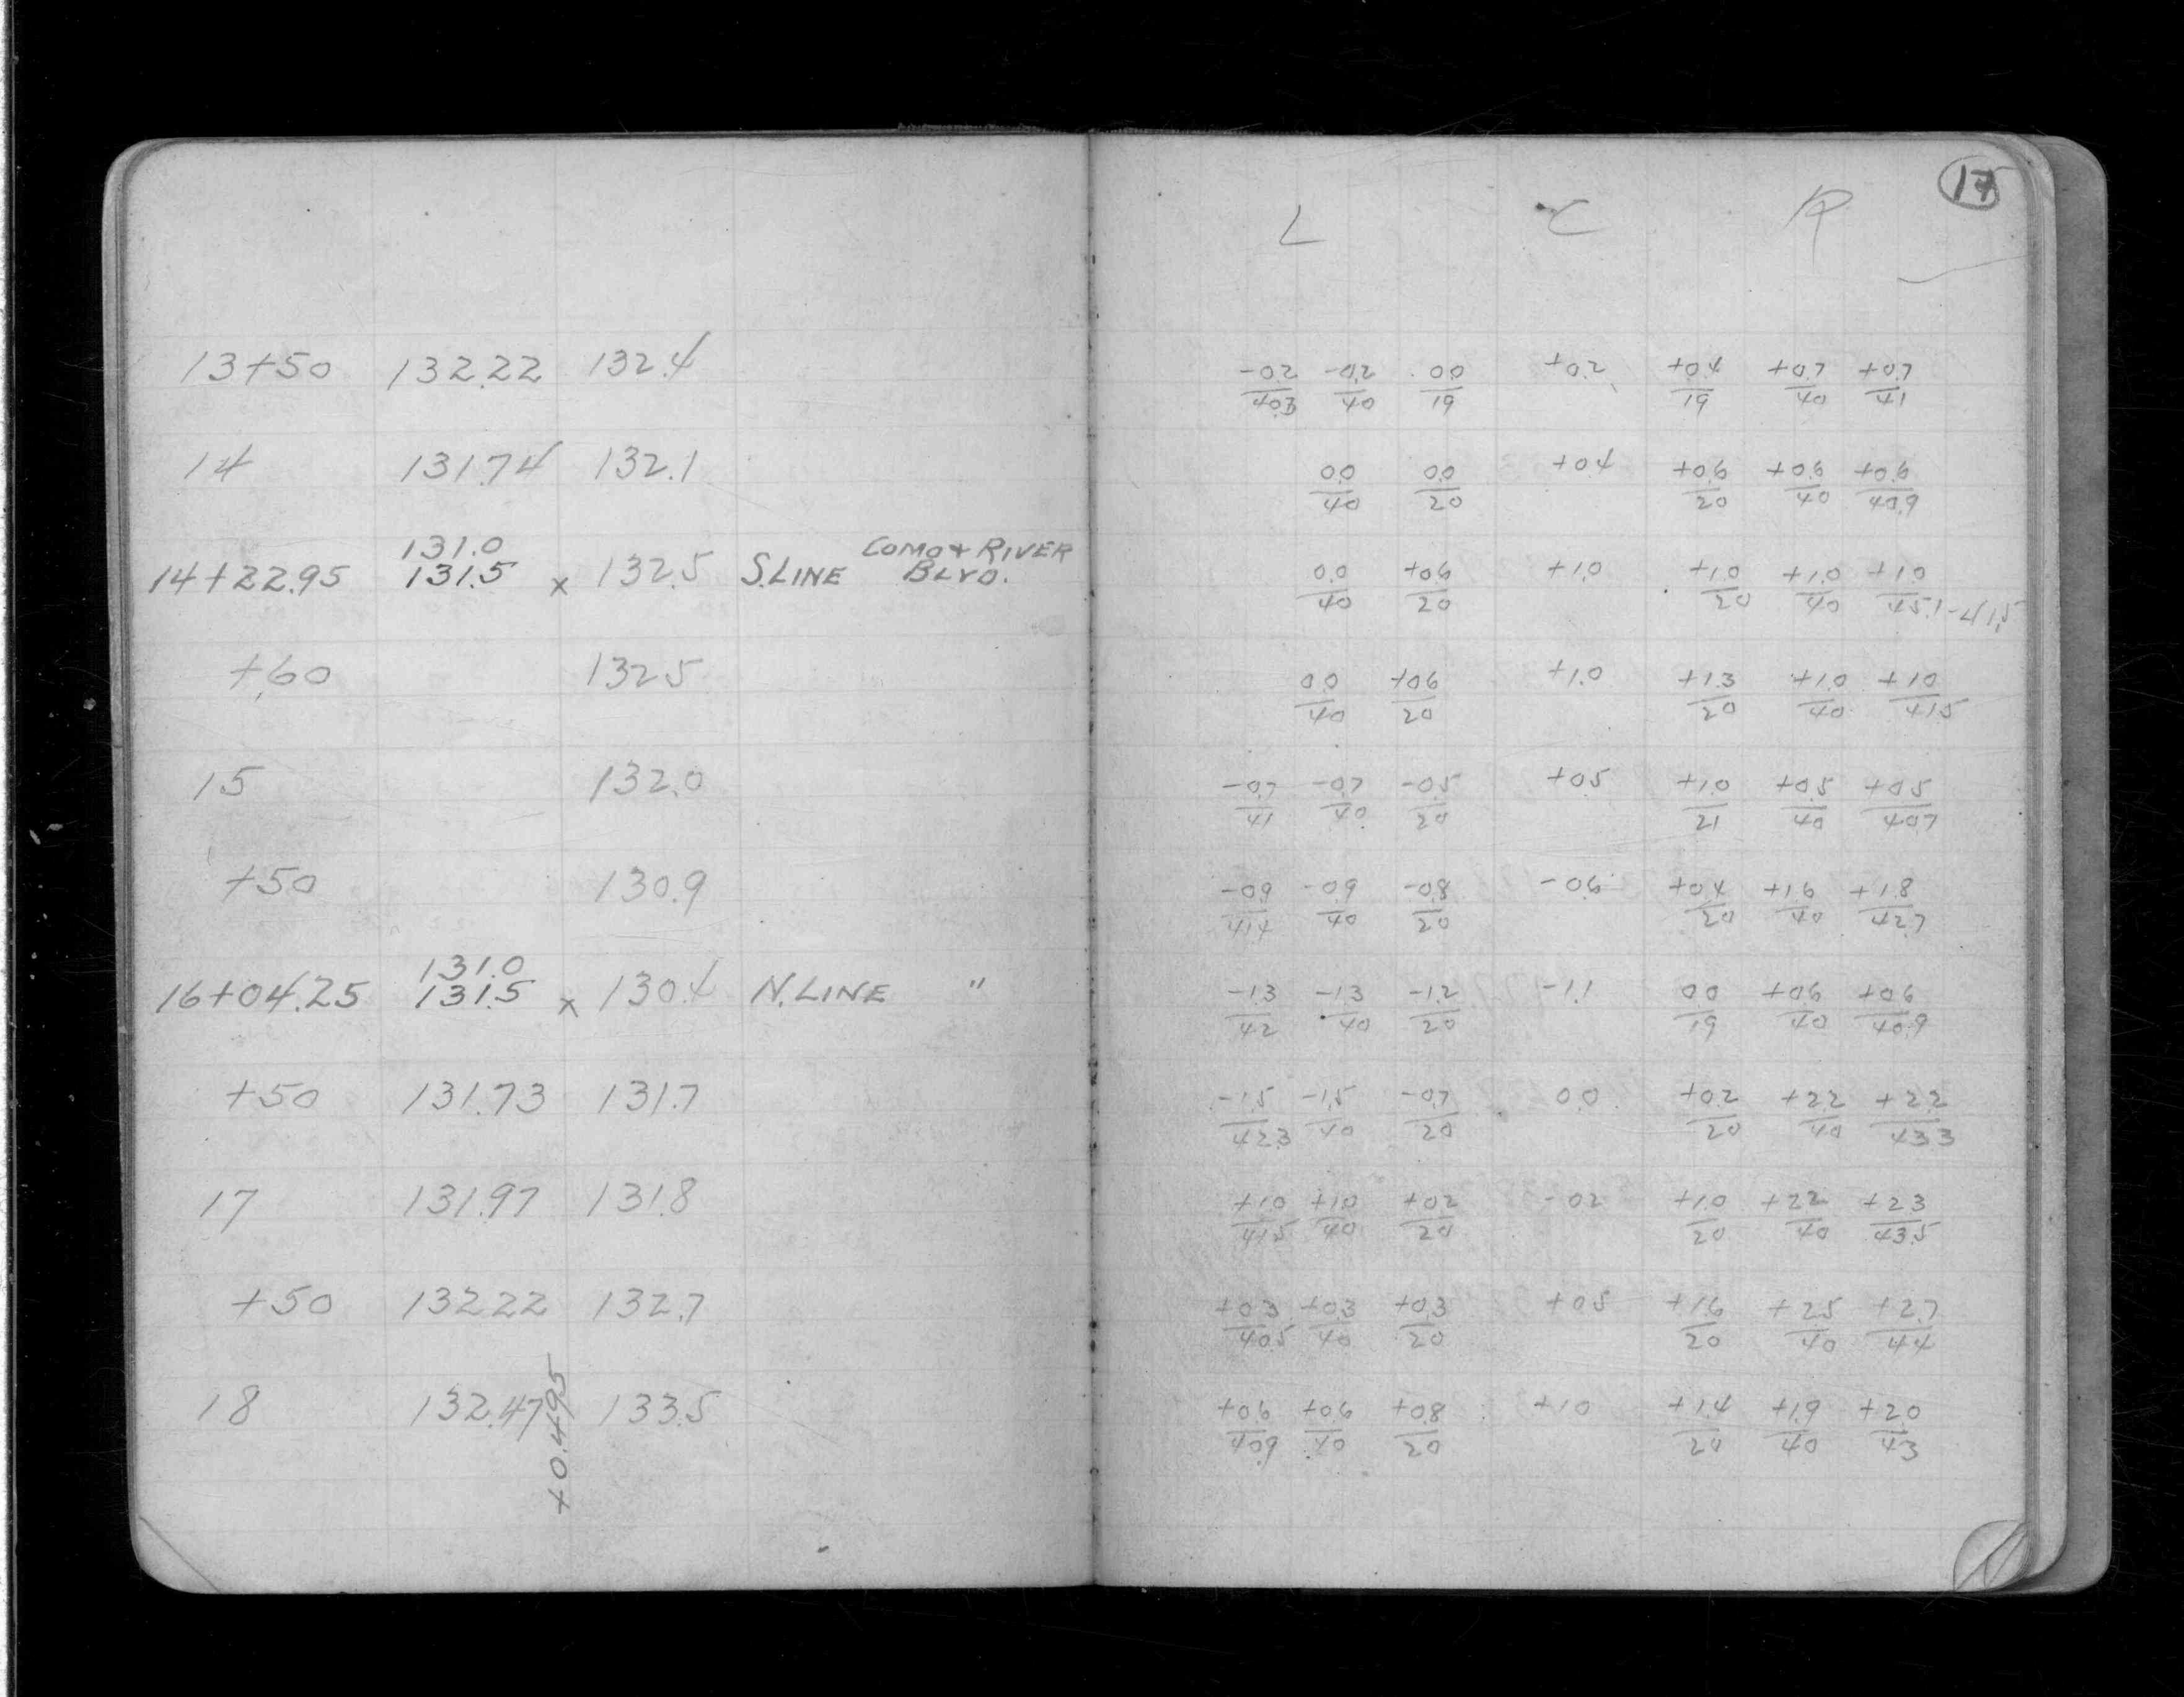 17
L C R
13+50 132.22 132.4 -0.2/40.3 -0.2/40 0.0/19 +0.2 +0.4/19 +0.7/40 +0.7/41
14 131.74 132.1 0.0/40 0.0/20 +0.4 +0.6/20 +0.6/40 +0.6/40.9
131.0 COMO & RIVER
14+22.95 131.5 x 132.5 S.LINE BLVD. 0.0/40 +0.6/20 +1.0 +1.0/20 +1.0/40 +1.0/45.1-41.5
+60 132.5 0.0/40 +0.6/20 +1.0 +1.3/20 +1.0/40 +1.0/41.5
15 132.0 -0.7/41 -0.7/40 -0.5/20 +0.5 +1.0/21 +0.5/40 +0.5/40.7
+50 130.9 -0.9/41.4 -0.9/40 -0.8/20 -0.6 +0.4/20 +1.6/40 +1.8/42.7
131.0
16+04.25 131.5 x 130.4 N.LINE " -1.3/42 -1.3/40 -1.2/20 -1.1 0.0/19 +0.6/40 +0.6/40.9
+50 131.73 131.7 -1.5/42.3 -1.5/40 -0.7/20 0.0 +0.2/20 +2.2/40 +2.2/43.3
17 131.97 131.8 +1.0/41.5 +1.0/40 +0.2/20 -0.2 +1.0/20 +2.2/40 +2.3/43.5
+50 132.22 132.7 +0.3/40.5 +0.3/40 +0.3/20 +0.5 +1.6/20 +2.5/40 +2.7/44
18 132.47 133.5 +0.6/40.9 +0.6/40 +0.8/20 +1.0 +1.4/20 +1.9/40 +2.0/43
+0.495